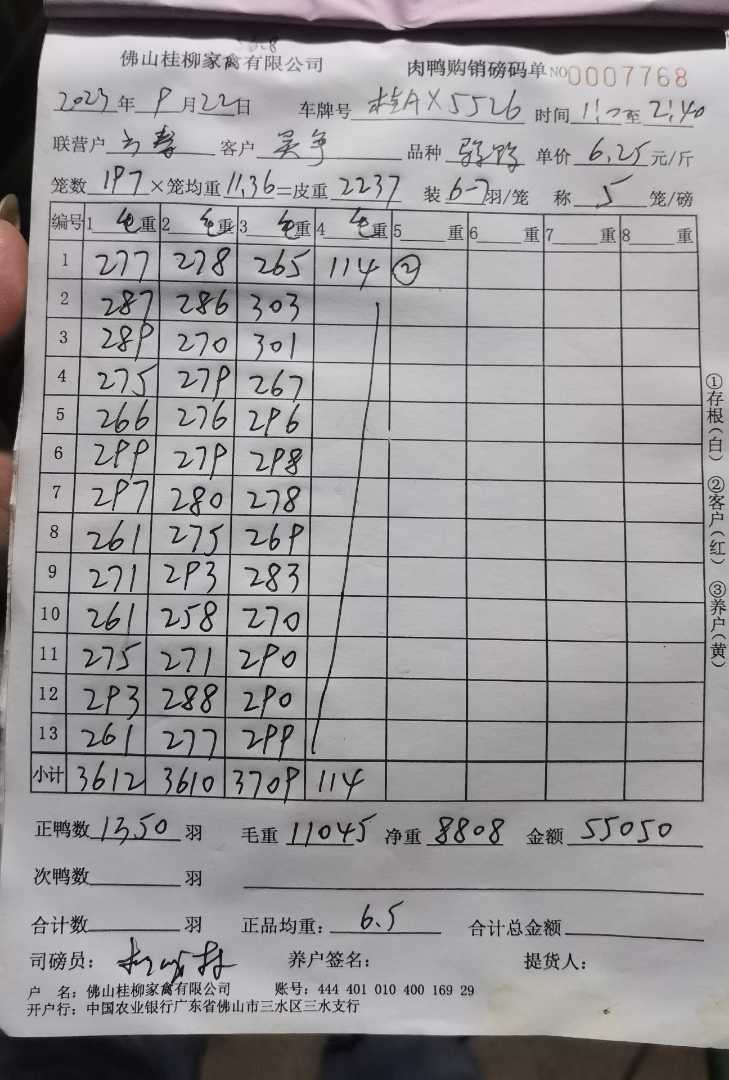 佛山桂柳家禽有限公司 肉鸭购销磅码单 NO0007768
2023年9月22日 车牌号 桂AX5526 时间 至2:40
联营户 客户 吴争 品种 单价 6.25 元/斤
笼数 197 ×笼均重 11.36 =皮重 2237 装 6-7 羽/笼 称 5 笼/磅
编号 1 毛重 2 毛重 3 毛重 4 毛重 5 重 6 重 7 重 8 重
1 277 278 265 114 ②
2 287 286 303
3 289 270 301
4 275 279 267
5 266 276 296
6 299 279 298
7 297 280 278
8 261 275 269
9 271 293 283
10 261 258 270
11 275 271 290
12 293 288 290
13 261 277 299
小计 3612 3610 3709 114
正鸭数 1350 羽 毛重 11045 净重 8808 金额 55050
次鸭数 羽
合计数 羽 正品均重: 6.5 合计总金额
司磅员: 养户签名: 提货人:
户 名: 佛山桂柳家禽有限公司 账号: 444 401 010 400 169 29
开户行: 中国农业银行广东省佛山市三水区三水支行
①存根(白) ②客户(红) ③养户(黄)